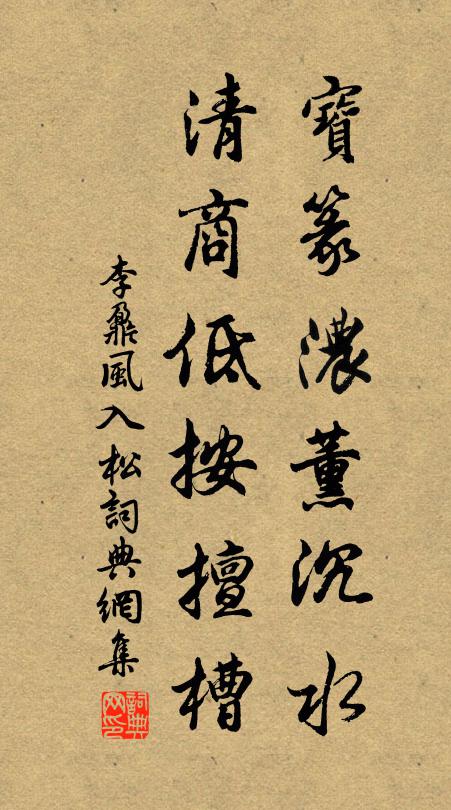 寶篆濃薰沉水
清商低按擅槽
李鼐風入松詞典網集
詞典网印